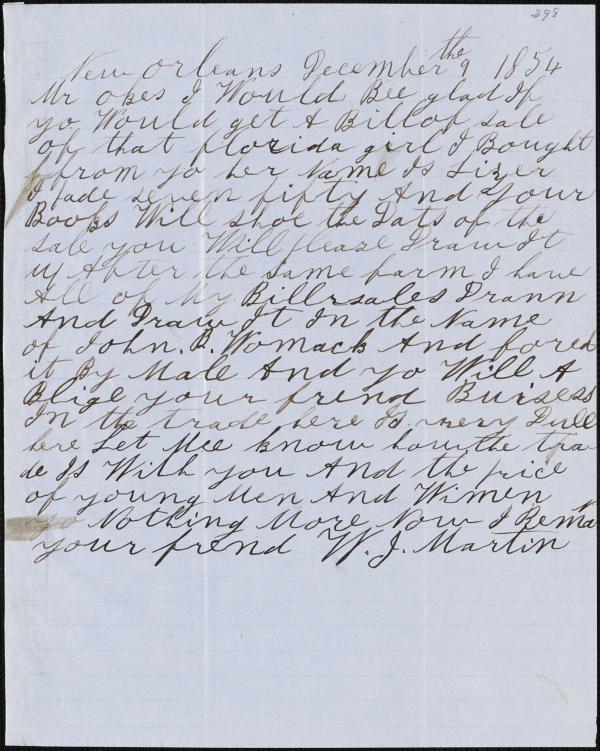 298
New Orleans December the 9 1854
Mr Okes I Would Bee glad If
yo Would get A Bill of sale
of that florida girl I Bought
from yo her Name Is Lizer
I pade seven fifty And Your
Books Will shoe the Dats of the
sale you Will please Draw It
up After the same farm I have
All of My Billrsales Drann
And Draw It In the Name
of John. B. Womack And fored
it By Male And yo Will A
Blige your frend Buisess
In the trade here Is very Dull
here Let Mee know how the tra
de Is With you And the price
of young Men And Wimen
yo Nothing More Now I Reman
your frend W. J. Martin